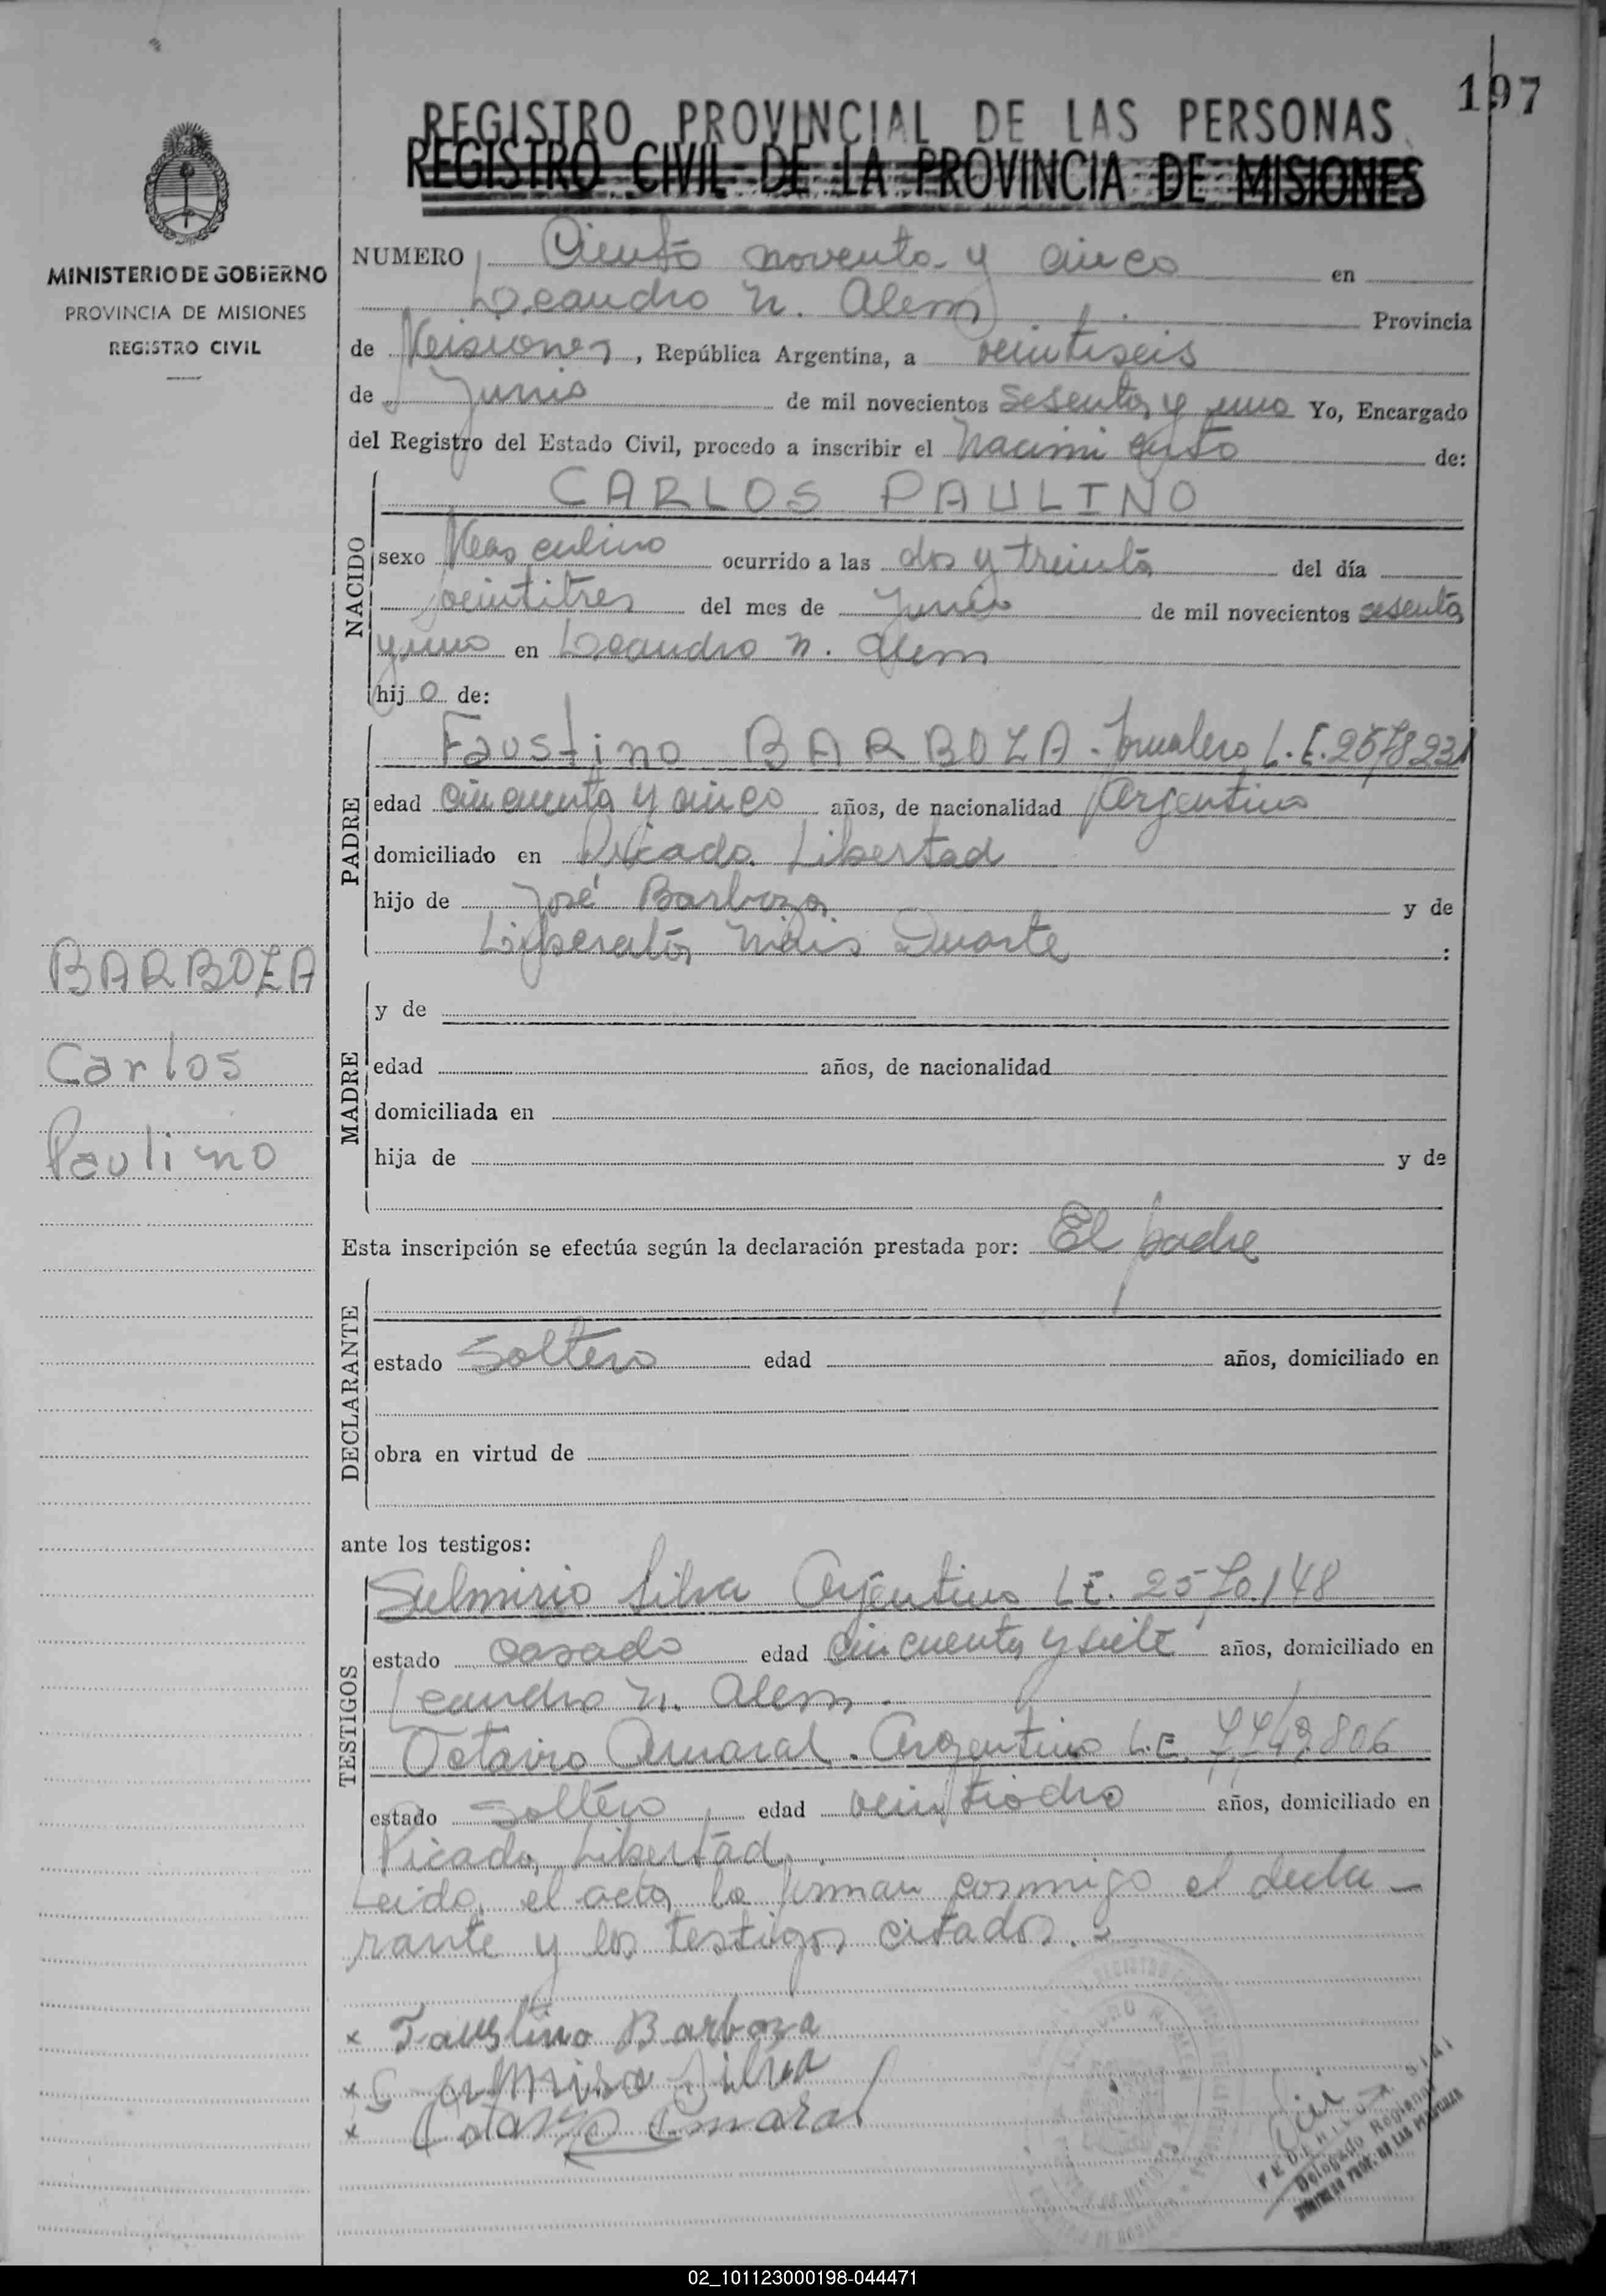 197
REGISTRO PROVINCIAL DE LAS PERSONAS
REGISTRO CIVIL DE LA PROVINCIA DE MISIONES
MINISTERIO DE GOBIERNO
PROVINCIA DE MISIONES
REGISTRO CIVIL
NUMERO Ciento noventa y cinco en
Leandro N. Alem Provincia
de Misiones, República Argentina, a veintiseis
de Junio de mil novecientos sesenta y uno Yo, Encargado
del Registro del Estado Civil, procedo a inscribir el nacimiento de:
NACIDO
CARLOS PAULINO
sexo Masculino ocurrido a las dos y treinta del día
veintitres del mes de Junio de mil novecientos sesenta
y uno en Leandro N. Alem
hijo de:
PADRE
Faustino BARBOZA. Jornalero L.E. 2578231
edad cincuenta y cinco años, de nacionalidad Argentino
domiciliado en Picada Libertad
hijo de José Barboza y de
Liberata Duarte :
BARBOZA
Carlos
Paulino
MADRE
y de
edad años, de nacionalidad
domiciliada en
hija de y de
Esta inscripción se efectúa según la declaración prestada por: El padre
DECLARANTE
estado Soltero edad años, domiciliado en
obra en virtud de
ante los testigos:
TESTIGOS
Silva Argentino L.E. 2570.148
estado casado edad cincuenta y siete años, domiciliado en
Leandro N. Alem.
Octavio Amaral. Argentino L.E. 806
estado soltero, edad veintiocho años, domiciliado en
Picada Libertad.
Leida el acta la firman conmigo el decla-
rante y los testigos citados.
x Faustino Barboza
x Silva
x Octavio Amaral
Delegado Regional
02_101123000198-044471